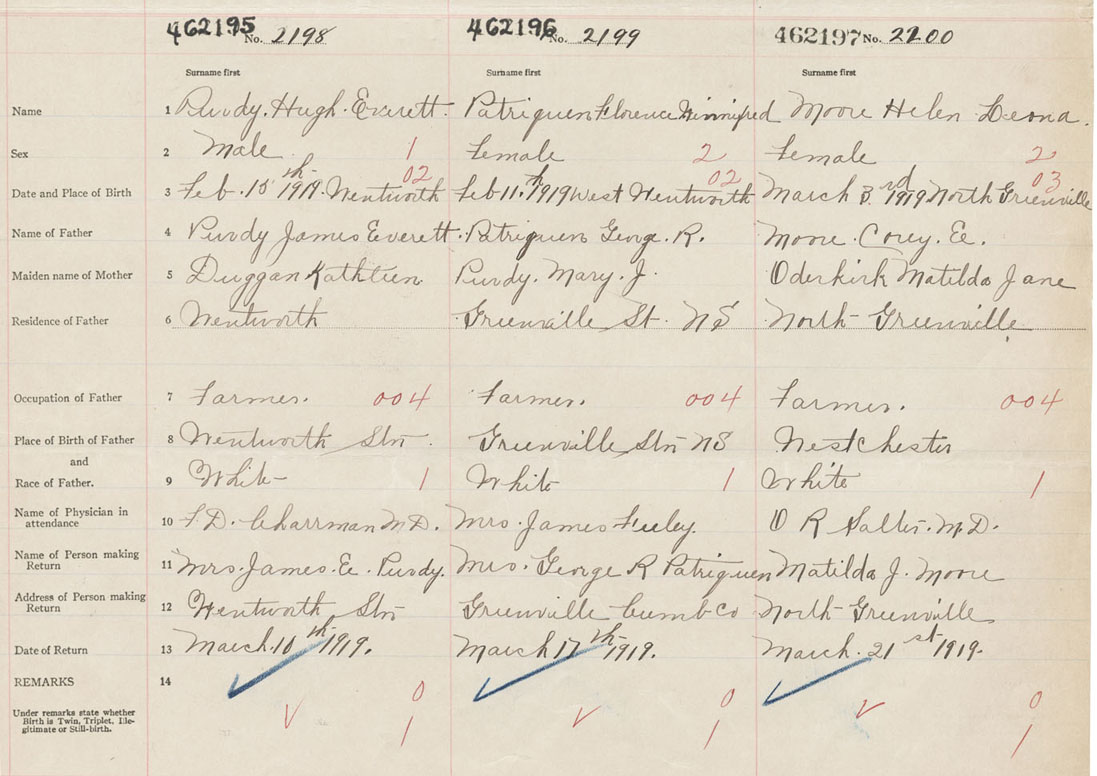 462195 No. 2198 462196 No. 2199 462197 No. 2200
Surname first Surname first Surname first
Name 1 Purdy. Hugh. Everett. Patriquen Florence Winnifred Moore Helen Leona.
Sex 2 Male 1 Female 2 Female 2
02 02 03
Date and Place of Birth 3 Feb. 15th 1919. Wentworth Feb 11th 1919 West Wentworth March 3rd 1919 North Greenville
Name of Father 4 Purdy James Everett. Patriquen George. R. Moore. Corey. E.
Maiden name of Mother 5 Duggan Kathleen Purdy. Mary. J. Oderkirk Matilda Jane
Residence of Father 6 Wentworth Greenville St. NS North Greenville
Occupation of Father 7 Farmer. 004 Farmer. 004 Farmer. 004
Place of Birth of Father 8 Wentworth Stn. Greenville Stn NS Westchester
and
Race of Father. 9 White 1 White 1 White 1
Name of Physician in
attendance 10 F.D. Charman M.D. Mrs. James Feeley. O R Salter. M.D.
Name of Person making
Return 11 Mrs. James. E. Purdy. Mrs. George R Patriquen Matilda J. Moore
Address of Person making
Return 12 Wentworth Stn Greenville Cumb Co North Greenville
Date of Return 13 March. 10th 1919. March 17th 1919. March. 21st 1919.
REMARKS 14
0 0 0
Under remarks state whether
Birth is Twin, Triplet, Ille-
gitimate or Still-birth.
1 1 1